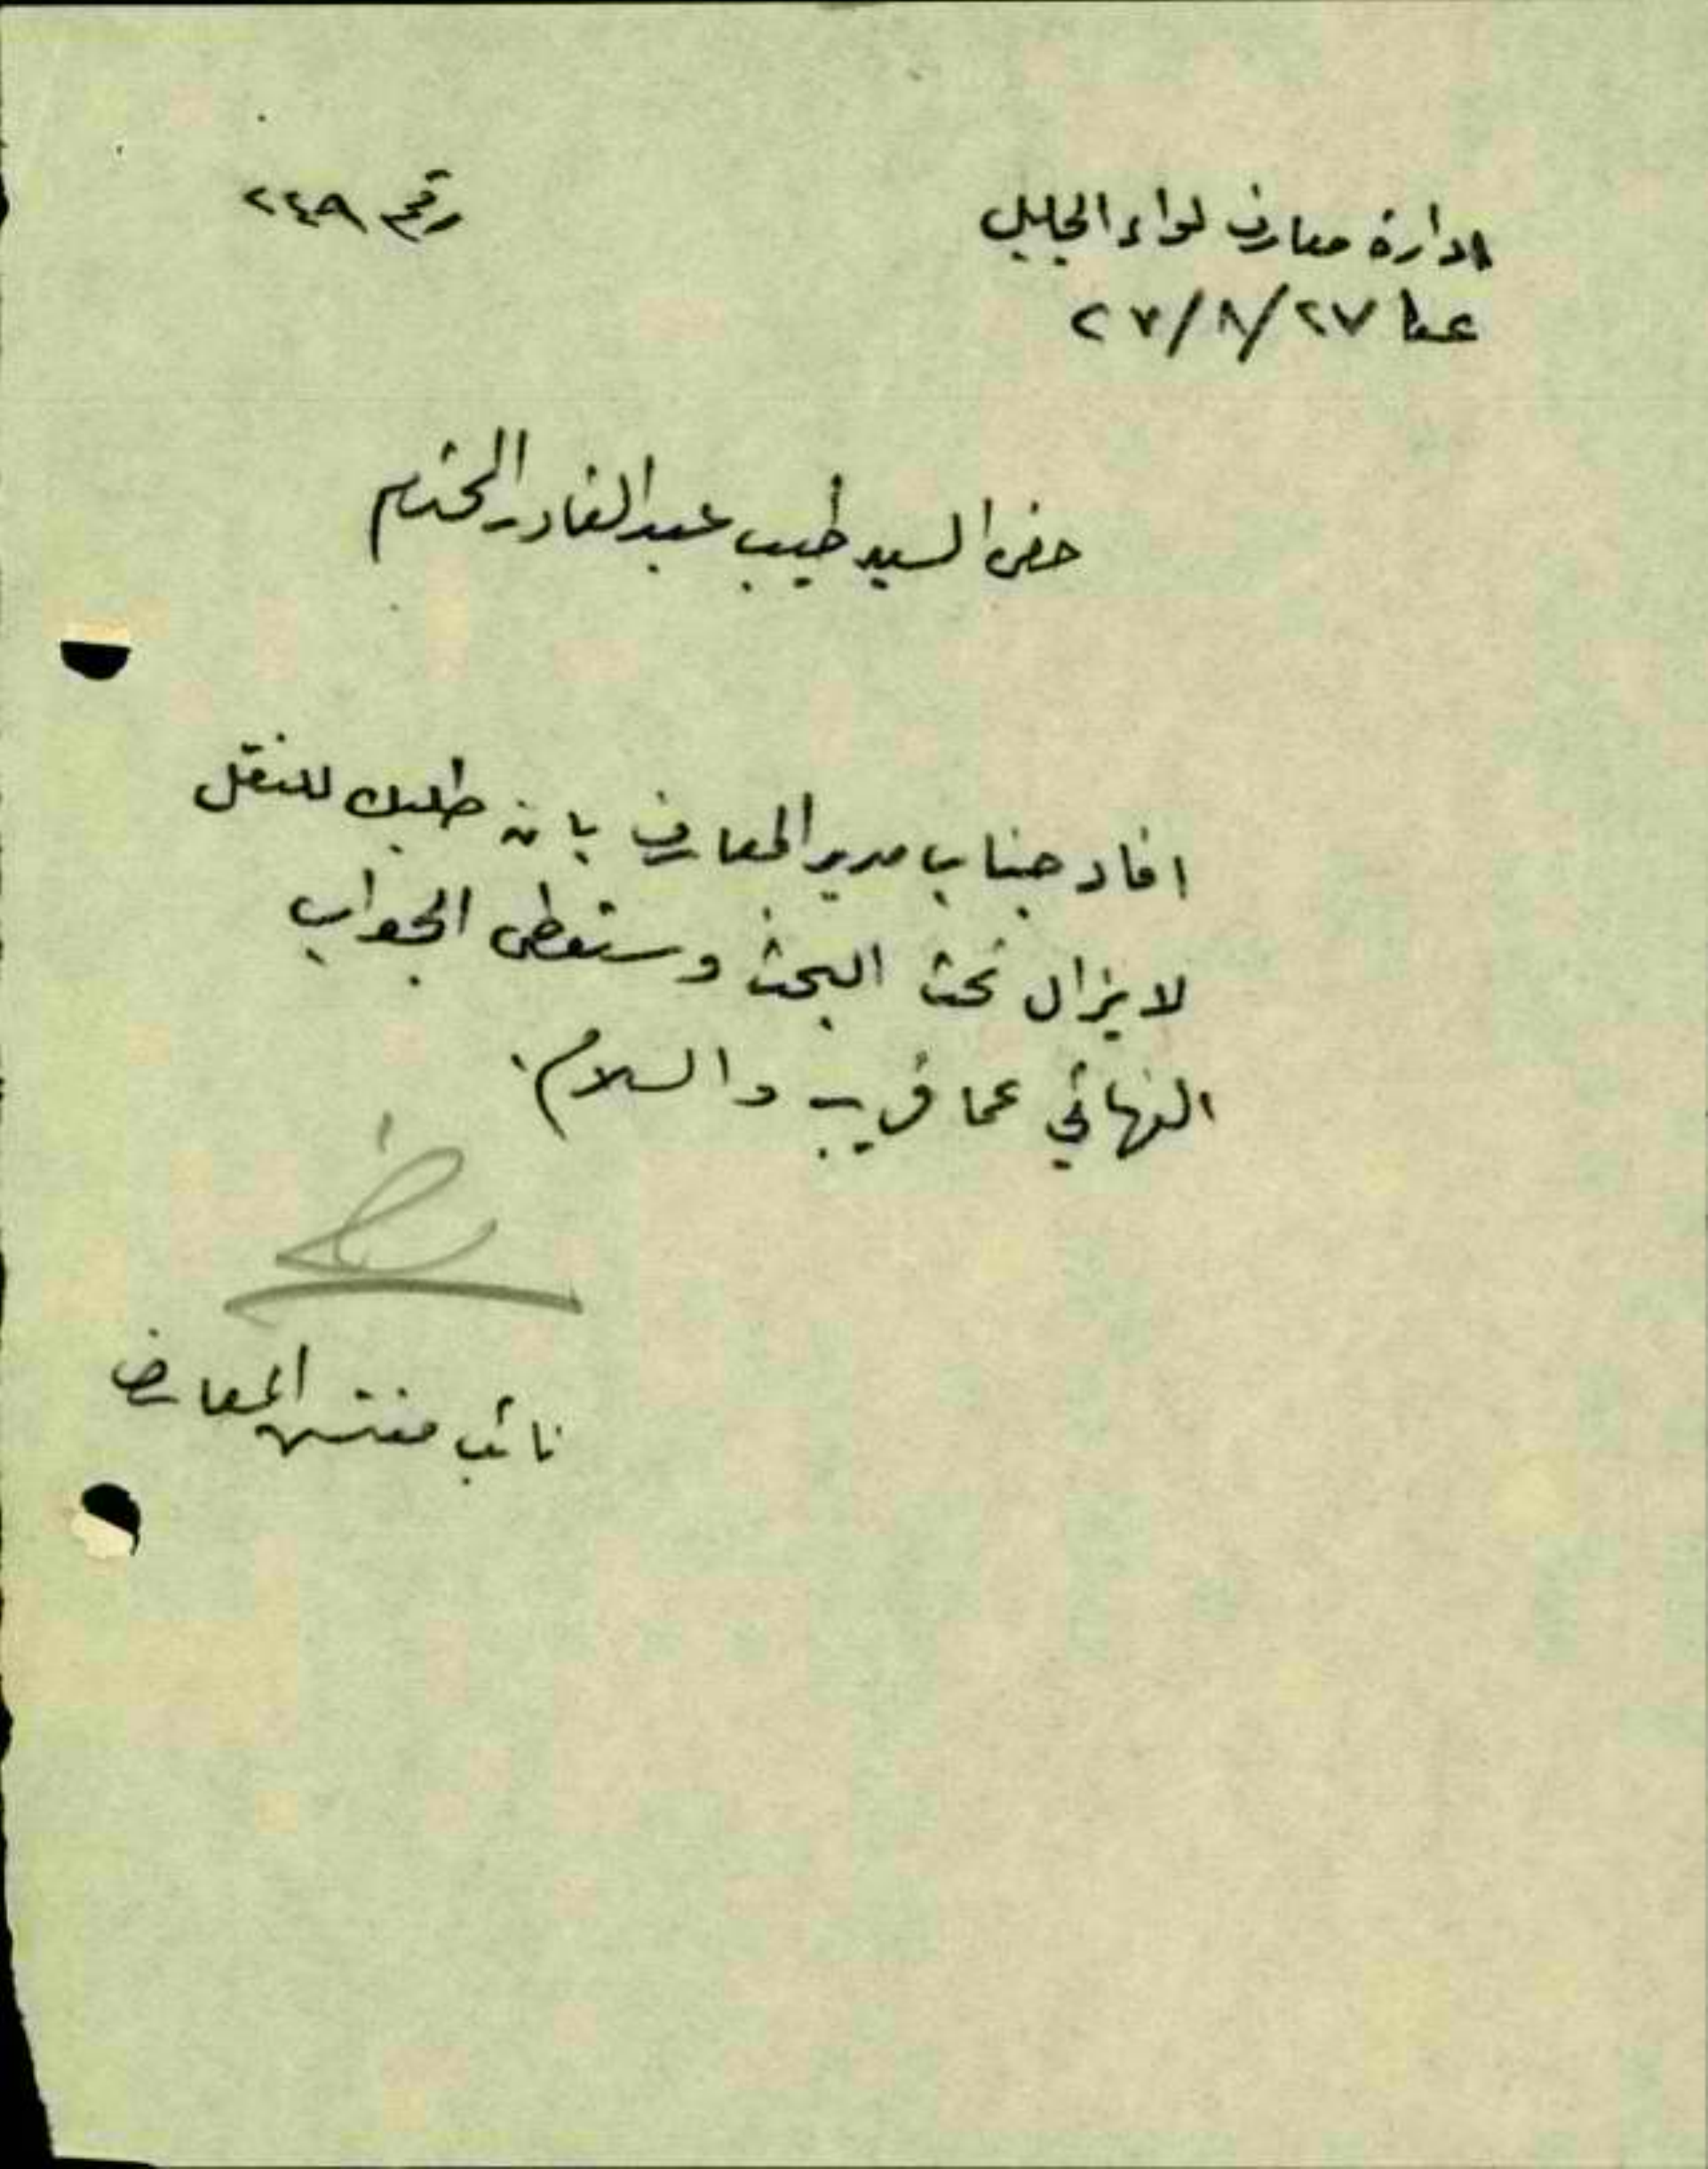 ادارة معارف لواء الجليل
رقم ٢٤٩
عكا ٢٧/٨/٢٧
حضرة السيد طيب عبد القادر المحترم
افاد جناب مدير المعارف بان طلبك للنقل
لا يزال تحت البحث وستعطى الجواب
النهائي عما قريب والسلام.
نائب مفتش المعارف